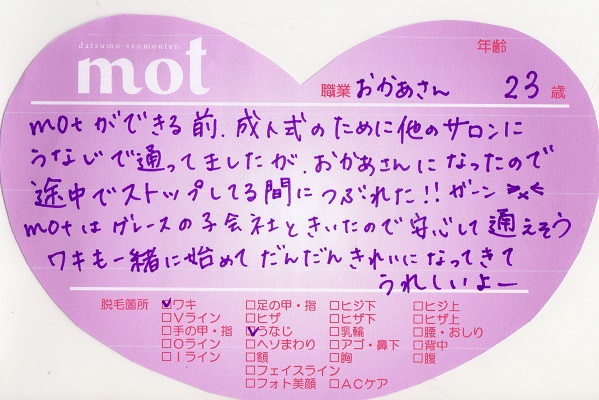 datsumo-senmonten
mot
年齢
職業 おかあさん 23 歳
motができる前、成人式のために他のサロンに
うなじで通ってましたが、おかあさんになったので
途中でストップしてる間につぶれた!! ガーン >×<
motはグレースの子会社ときいたので安心して通えそう
ワキも一緒に始めてだんだんきれいになってきて
うれしいよー
脱毛箇所 ☑ワキ □足の甲・指 □ヒジ下 □ヒジ上
□Vライン □ヒザ □ヒザ下 □ヒザ上
□手の甲・指 ☑うなじ □乳輪 □腰・おしり
□Oライン □ヘソまわり □アゴ・鼻下 □背中
□Iライン □額 □胸 □腹
□フェイスライン
□フォト美顔 □ACケア